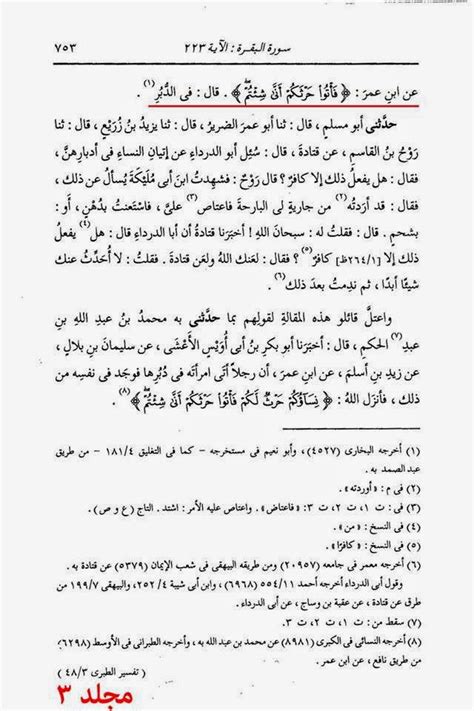 سورة البقرة : الآية ٢٢٣
٧٥٣
عن ابنِ عمرَ : ﴿ فَأْتُوا۟ حَرْثَكُمْ أَنَّىٰ شِئْتُمْ ﴾ . قال : فى الدُّبُرِ (١) .
حدَّثنى أبو مسلمٍ ، قال : ثنا أبو عمرَ الضريرُ ، قال : ثنا يزيدُ بنُ زُرَيْعٍ ، قال : ثنا
رَوْحُ بنُ القاسمِ ، عن قتادةَ ، قال : سُئِل أبو الدرداءِ عن إتيانِ النساءِ فى أدبارِهنَّ ،
فقال : هل يفعلُ ذلك إلا كافرٌ ؟ قال رَوْحٌ : فشهِدتُ ابنَ أبى مُلَيْكةَ يُسألُ عن ذلك ،
فقال : قد أرَدتُه (٢) من جاريةٍ لى البارحةَ فاعتاص (٣) علىَّ ، فاستَعَنتُ بدُهْنٍ ، أو :
بشحمٍ . قال : فقلتُ له : سبحانَ اللهِ ! أخبَرَنا قتادةُ أن أبا الدرداءِ قال : هل (٤) يفعلُ
ذلك إلا [٢٦٤/١ظ] كافرٌ (٥) ؟ فقال : لعَنك اللهُ ولعَن قتادةَ . فقلتُ : لا أُحَدِّثُ عنك
شيئًا أبدًا ، ثم ندِمتُ بعدَ ذلك (٦) .
واعتلَّ قائلو هذه المقالةِ لقولِهم بما حدَّثنى به محمدُ بنُ عبدِ اللهِ بنِ
عبدِ (٧) الحكمِ ، قال : أخبَرَنا أبو بكرِ بنُ أبى أُوَيْسٍ الأَعْشَى ، عن سليمانَ بنِ بلالٍ ،
عن زيدِ بنِ أسلمَ ، عن ابنِ عمرَ ، أن رجلًا أتى امرأتَه فى دُبُرِها فوجَد فى نفسِه من
ذلك ، فأنزَل اللهُ : ﴿ نِسَآؤُكُمْ حَرْثٌ لَّكُمْ فَأْتُوا۟ حَرْثَكُمْ أَنَّىٰ شِئْتُمْ ﴾ (٨) .
(١) أخرجه البخارى (٤٥٢٧) ، وأبو نعيم فى مستخرجه - كما فى التغليق ١٨١/٤ - من طريق
عبد الصمد به .
(٢) فى م : « أوردته » .
(٣) فى : ت ١، ت ٢، ت ٣: « فاعتاض » . واعتاص عليه الأمر : اشتد . التاج (ع و ص) .
(٤) فى النسخ : « من » .
(٥) فى النسخ : « كافرًا » .
(٦) أخرجه معمر فى جامعه (٢٠٩٥٧) ومن طريقه البيهقى فى شعب الإيمان (٥٣٧٩) عن قتادة به .
وقول أبى الدرداء أخرجه أحمد ٥٥٤/١١ (٦٩٦٨) ، وابن أبى شيبة ٢٥٢/٤ ، والبيهقى ١٩٩/٧ من
طرق عن قتادة ، عن عقبة بن وساج ، عن أبى الدرداء .
(٧) سقط من : ت ١، ت ٢، ت ٣.
(٨) أخرجه النسائى فى الكبرى (٨٩٨١) عن محمد بن عبد الله به ، وأخرجه الطبرانى فى الأوسط (٦٢٩٨)
من طريق نافع ، عن ابن عمر .
( تفسير الطبرى ٤٨/٣ )
مجلد ٣